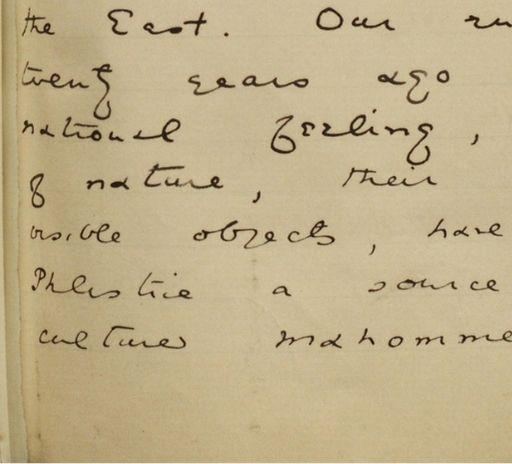 the East. Our ru
twenty years ago
national feeling,
of nature, their
visible objects, have
Phlistie a source
culture mahomme